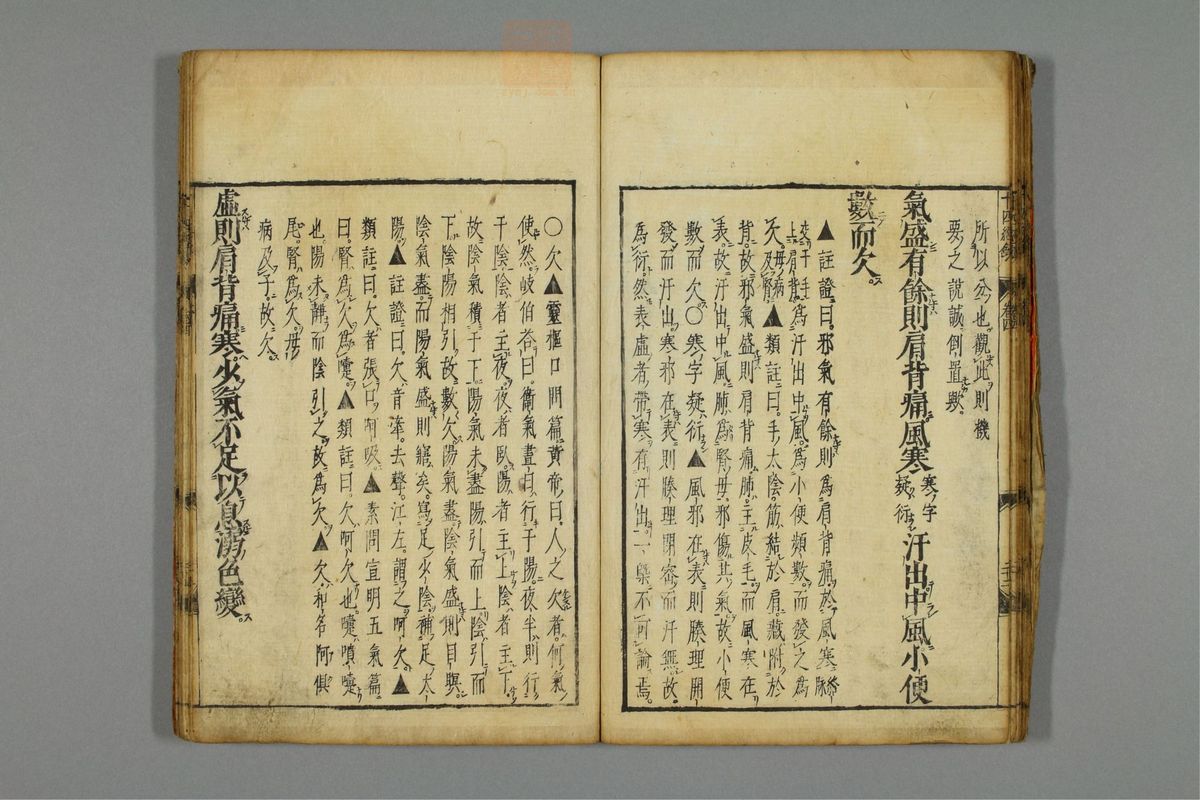 所以分也觀此則機
要之説誠倒置歟。
氣盛有餘則肩背痛風寒寒字疑衍汗出中風小便
數而欠。
▲註證曰。邪氣有餘則爲肩背痛於風寒
上肩背爲汗出中風。爲小便頻數而發之爲
欠。母病及腎▲類註曰。手太陰。筋結於肩。藏附於
背。故邪氣盛則肩背痛。肺主皮毛而風寒在
表。故汗出中風。肺爲腎母。邪傷其氣。故小便
數而欠。○寒字疑衍▲風邪在表則腠理開
發而汗出。寒邪在表則腠理閉密而汗無。故
爲衍。然表虛者。帶寒有汗出。一槩不可論焉。
○欠▲靈樞口問篇黃帝曰。人之欠者。何氣
使然。岐伯荅曰。衞氣晝日行于陽。夜半則行
于陰。陰者主夜。夜者臥。陽者主上。陰者主下。
故陰氣積于下。陽氣未盡陽引而上。陰引而
下。陰陽相引。故數欠。陽氣盡。陰氣盛則目瞑。
陰氣盡。而陽氣盛則寤矣。寫足少陰。補足太
陽。▲註證曰。欠音去聲。江左謂之呵欠▲
類註曰。欠者張口呵吸。▲素問宣明五氣篇
曰。腎爲欠。爲嚏。▲類註曰。欠呵欠也。嚏噴嚏
也。陽未靜而陰引之。故爲欠。▲欠和名阿俱
尾。腎爲欠。母
病及子。故欠。
虛則肩背痛寒。少氣不足以息。溺色變。